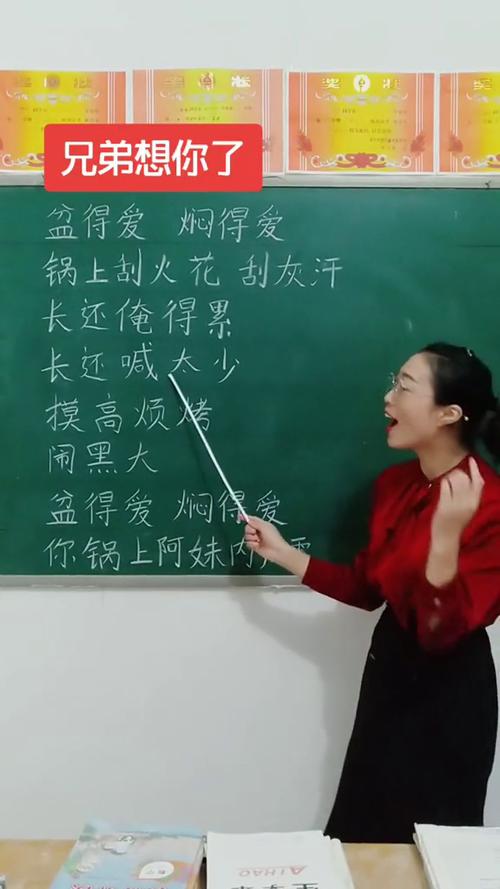 奖 状
兄弟想你了
盆得爱 焖得爱
锅上刮火花 刮灰汗
长还俺得累
长还喊太少
摸高烦烤
闹黑大
盆得爱 焖得爱
你锅上阿妹内
AIHAO